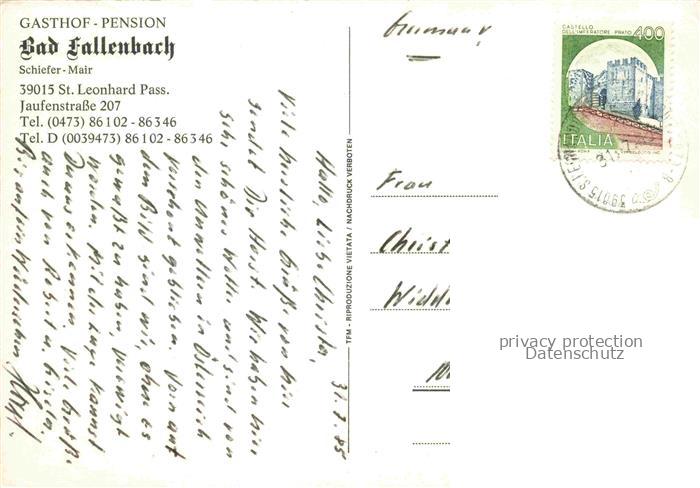 GASTHOF - PENSION
Bad Fallenbach
Schiefer - Mair
39015 St. Leonhard Pass.
Jaufenstraße 207
Tel. (0473) 86102 - 86346
Tel. D (0039473) 86102 - 86346
31.7.85
Hallo, Liebe Christa,
Viele herzliche Grüße von hier
sendet Dir Horst. Wir haben hier
sehr schönes Wetter und sind von
den Unwettern in Österreich
verschont geblieben. Vorn auf
dem Bild sind wir, ohne es
gewußt zu haben, verewigt
worden. Mit der Lupe kannst
Du uns erkennen. Viele Grüße
auch von Robert u. Gisela.
Bis auf ein Wiedersehen Horst
TFM - RIPRODUZIONE VIETATA / NACHDRUCK VERBOTEN
Germany
Frau
Christ
Widd
CASTELLO
DELL'IMPERATORE - PRATO 400
ITALIA
39015 S.LEO
31.7
privacy protection
Datenschutz